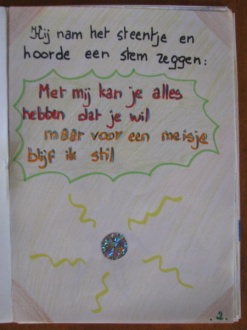 Hij nam het steentje en
hoorde een stem zeggen:
Met mij kan je alles
hebben dat je wil
maar voor een meisje
blijf ik stil
.2.